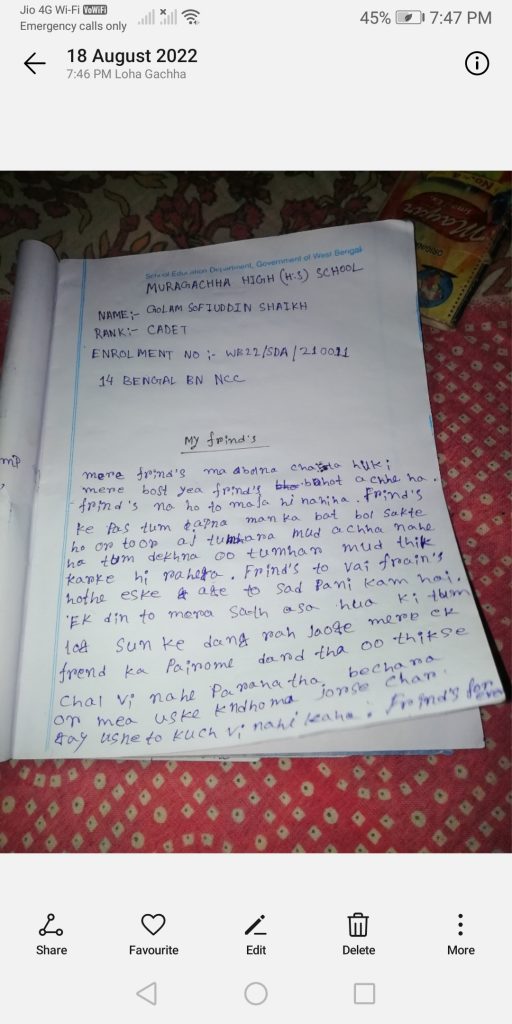 Jio 4G Wi-Fi VoWiFi
Emergency calls only
45% 7:47 PM
18 August 2022
7:46 PM Loha Gachha
School Education Department, Government of West Bengal
MURAGACHHA HIGH (H.S) SCHOOL
NAME;- GOLAM SOFIUDDIN SHAIKH
RANK:- CADET
ENROLMENT NO ;- WB22/SDA/210011
14 BENGAL BN NCC
My frind's
mera frind's ma chata huki
mere bost yea frind's bahot achhe ha.
frind's na ho to maja hi nahina. Frind's
ke Pas tum apna man ka bat bol sakte
ho or toor aj tumhara mud achha nahe
ha tum dekhna oo tumhar mud thik
karke hi rahega. Frind's to vai
hothe eske age to sad Pani kam hai.
EK din to mera sath asa hua ki tum
log sun ke dang rah jaoge mere ek
frend ka Pairome dard tha oo thikse
Chal vi nahe Pa raha tha. bechara
or mea uske kndhoma
ushe to kuch vi nahi kaha. Frind's for
Share
Favourite
Edit
Delete
More